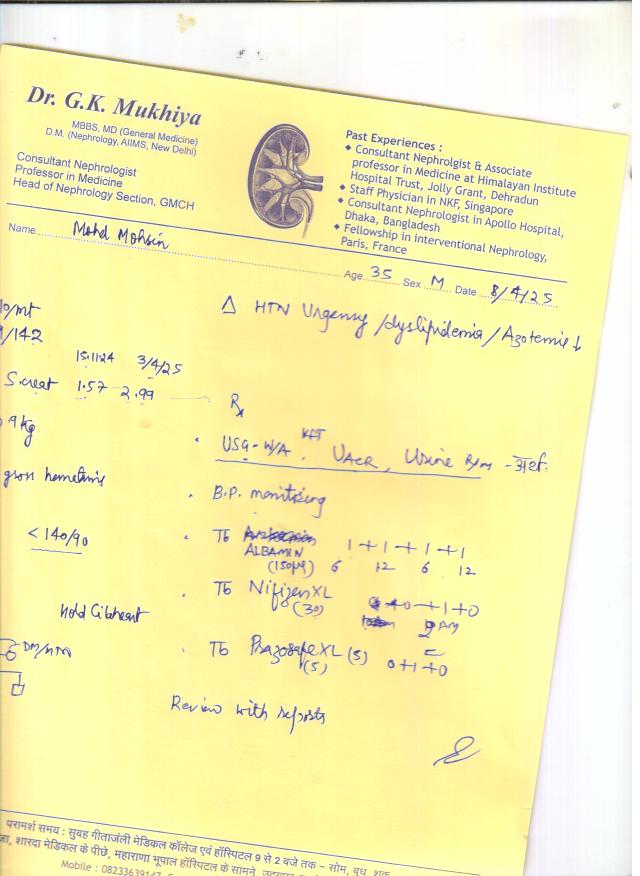 Dr. G.K. Mukhiya
MBBS, MD (General Medicine)
D.M. (Nephrology, AIIMS, New Delhi)
Consultant Nephrologist
Professor in Medicine
Head of Nephrology Section, GMCH
Past Experiences :
◆ Consultant Nephrolgist & Associate
professor in Medicine at Himalayan Institute
Hospital Trust, Jolly Grant, Dehradun
◆ Staff Physician in NKF, Singapore
◆ Consultant Nephrologist in Apollo Hospital,
Dhaka, Bangladesh
◆ Fellowship in interventional Nephrology,
Paris, France
Name Mohd Mohsin
Age 35 Sex M Date 8/4/25
Δ HTN Urgency / dyslipidemia / Azotemia
/142
15.11.24 3/4/25
S.creat 1.57 2.99
Rx
9 kg
USG-W/A, KFT UACR, Urine R/m
gross hematuria
B.P. monitoring
< 140/90
Tb
ALBAMIN 1+1+1+1
(150µg) 6 12 6 12
Tb Nifizen XL
(30) +0 +1+0
Hold Cibheart
DM/HTN
Tb Prazosafe XL (5)
(5) 0+1+0
Review with reports
परामर्श समय : सुबह गीतांजंली मेडिकल कॉलेज एवं हॉस्पिटल 9 से 2 बजे तक – सोम, बुध,
शारदा मेडिकल के पीछे, महाराणा भूपाल हॉस्पिटल के सामने,
Mobile : 08233639147